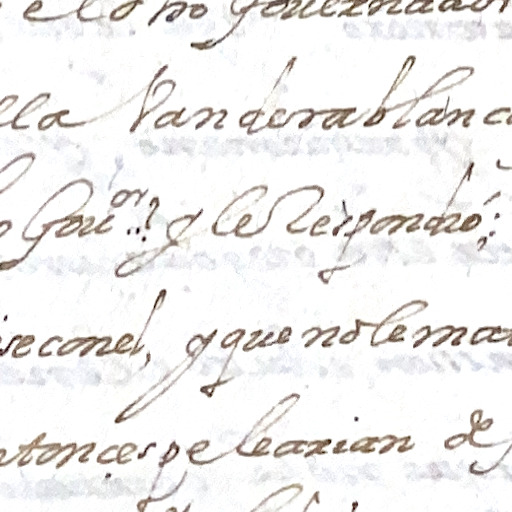 el dho Gouernador
lla Vandera blanca
o Gou.or y le Respondió:
se con el, y que no le mat
ntonces pelearian de